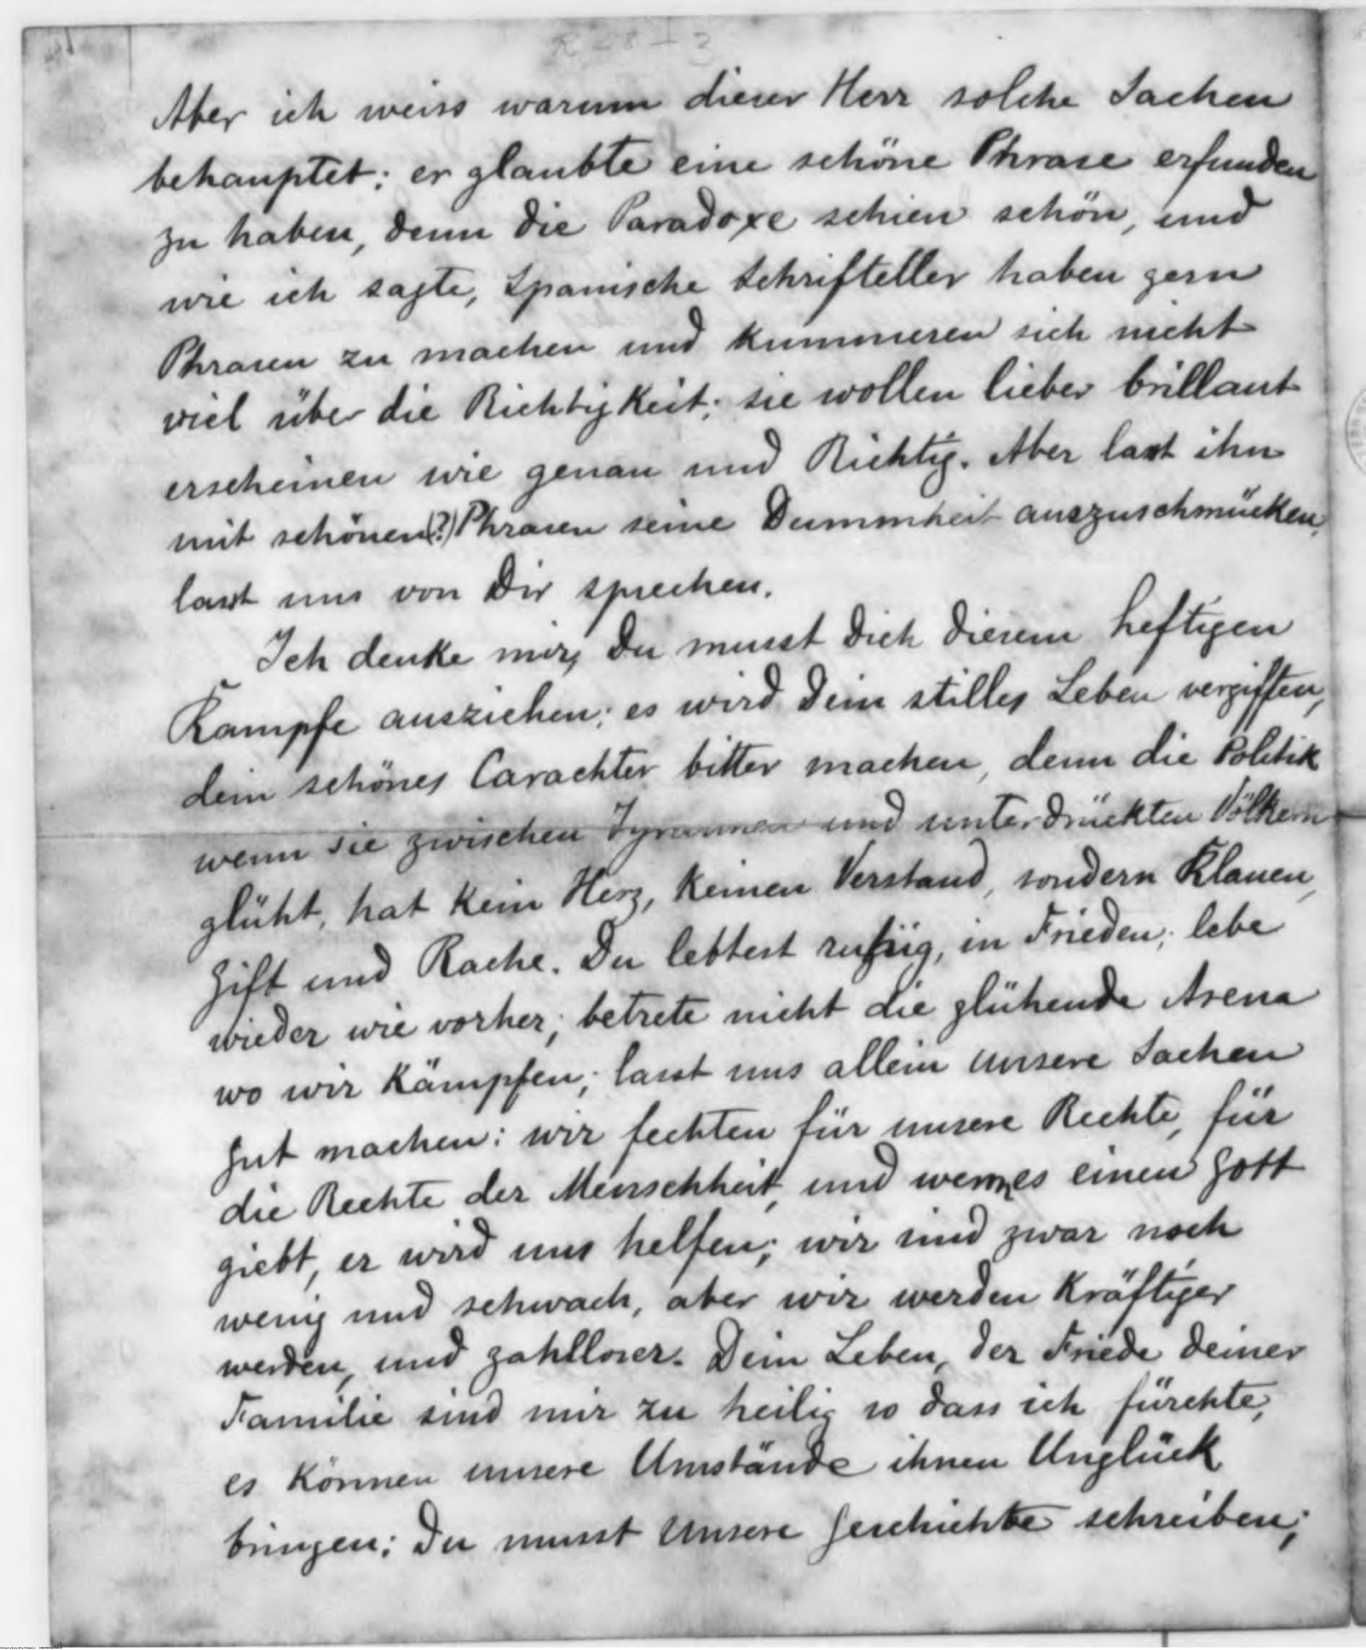 R-28-3
Aber ich weiss warum dieser Herr solche Sachen
behauptet: er glaubte eine schöne Phrase erfunden
zu haben, denn die Paradoxe schien schön, und
wie ich sagte, Spanische Schrifteller haben gern
Phrasen zu machen und kummeren sich nicht
viel über die Richtigkeit: sie wollen lieber brillant
erscheinen wie genau und Richtig. Aber lasst ihn
mit schönen(?) Phrasen seine Dummheit auszuschmücken,
lasst uns von Dir sprechen.
Ich denke mir, Du musst Dich diesem heftigen
Kampfe ausziehen; es wird Dein stilles Leben vergiften,
dein schönes Carachter bitter machen, denn die Politik
wenn sie zwischen Tyrannen und unterdrückten Völkern
glüht, hat kein Herz, keinen Verstand, sondern Klauen,
Gift und Rache. Du lebtest ruhig, in Frieden; lebe
wieder wie vorher; betrete nicht die glühende Arena
wo wir kämpfen; lasst uns allein unsere Sachen
gut machen: wir fechten für unsere Rechte, für
die Rechte der Menschheit, und wenn es einen Gott
giebt, er wird uns helfen; wir sind zwar noch
wenig und schwach, aber wir werden kräftiger
werden, und zahlloser. Dein Leben, der Friede deiner
Familie sind mir zu heilig so dass ich fürchte,
es können unsere Umstände ihnen Unglück
bringen: Du musst unsere Geschichte schreiben;